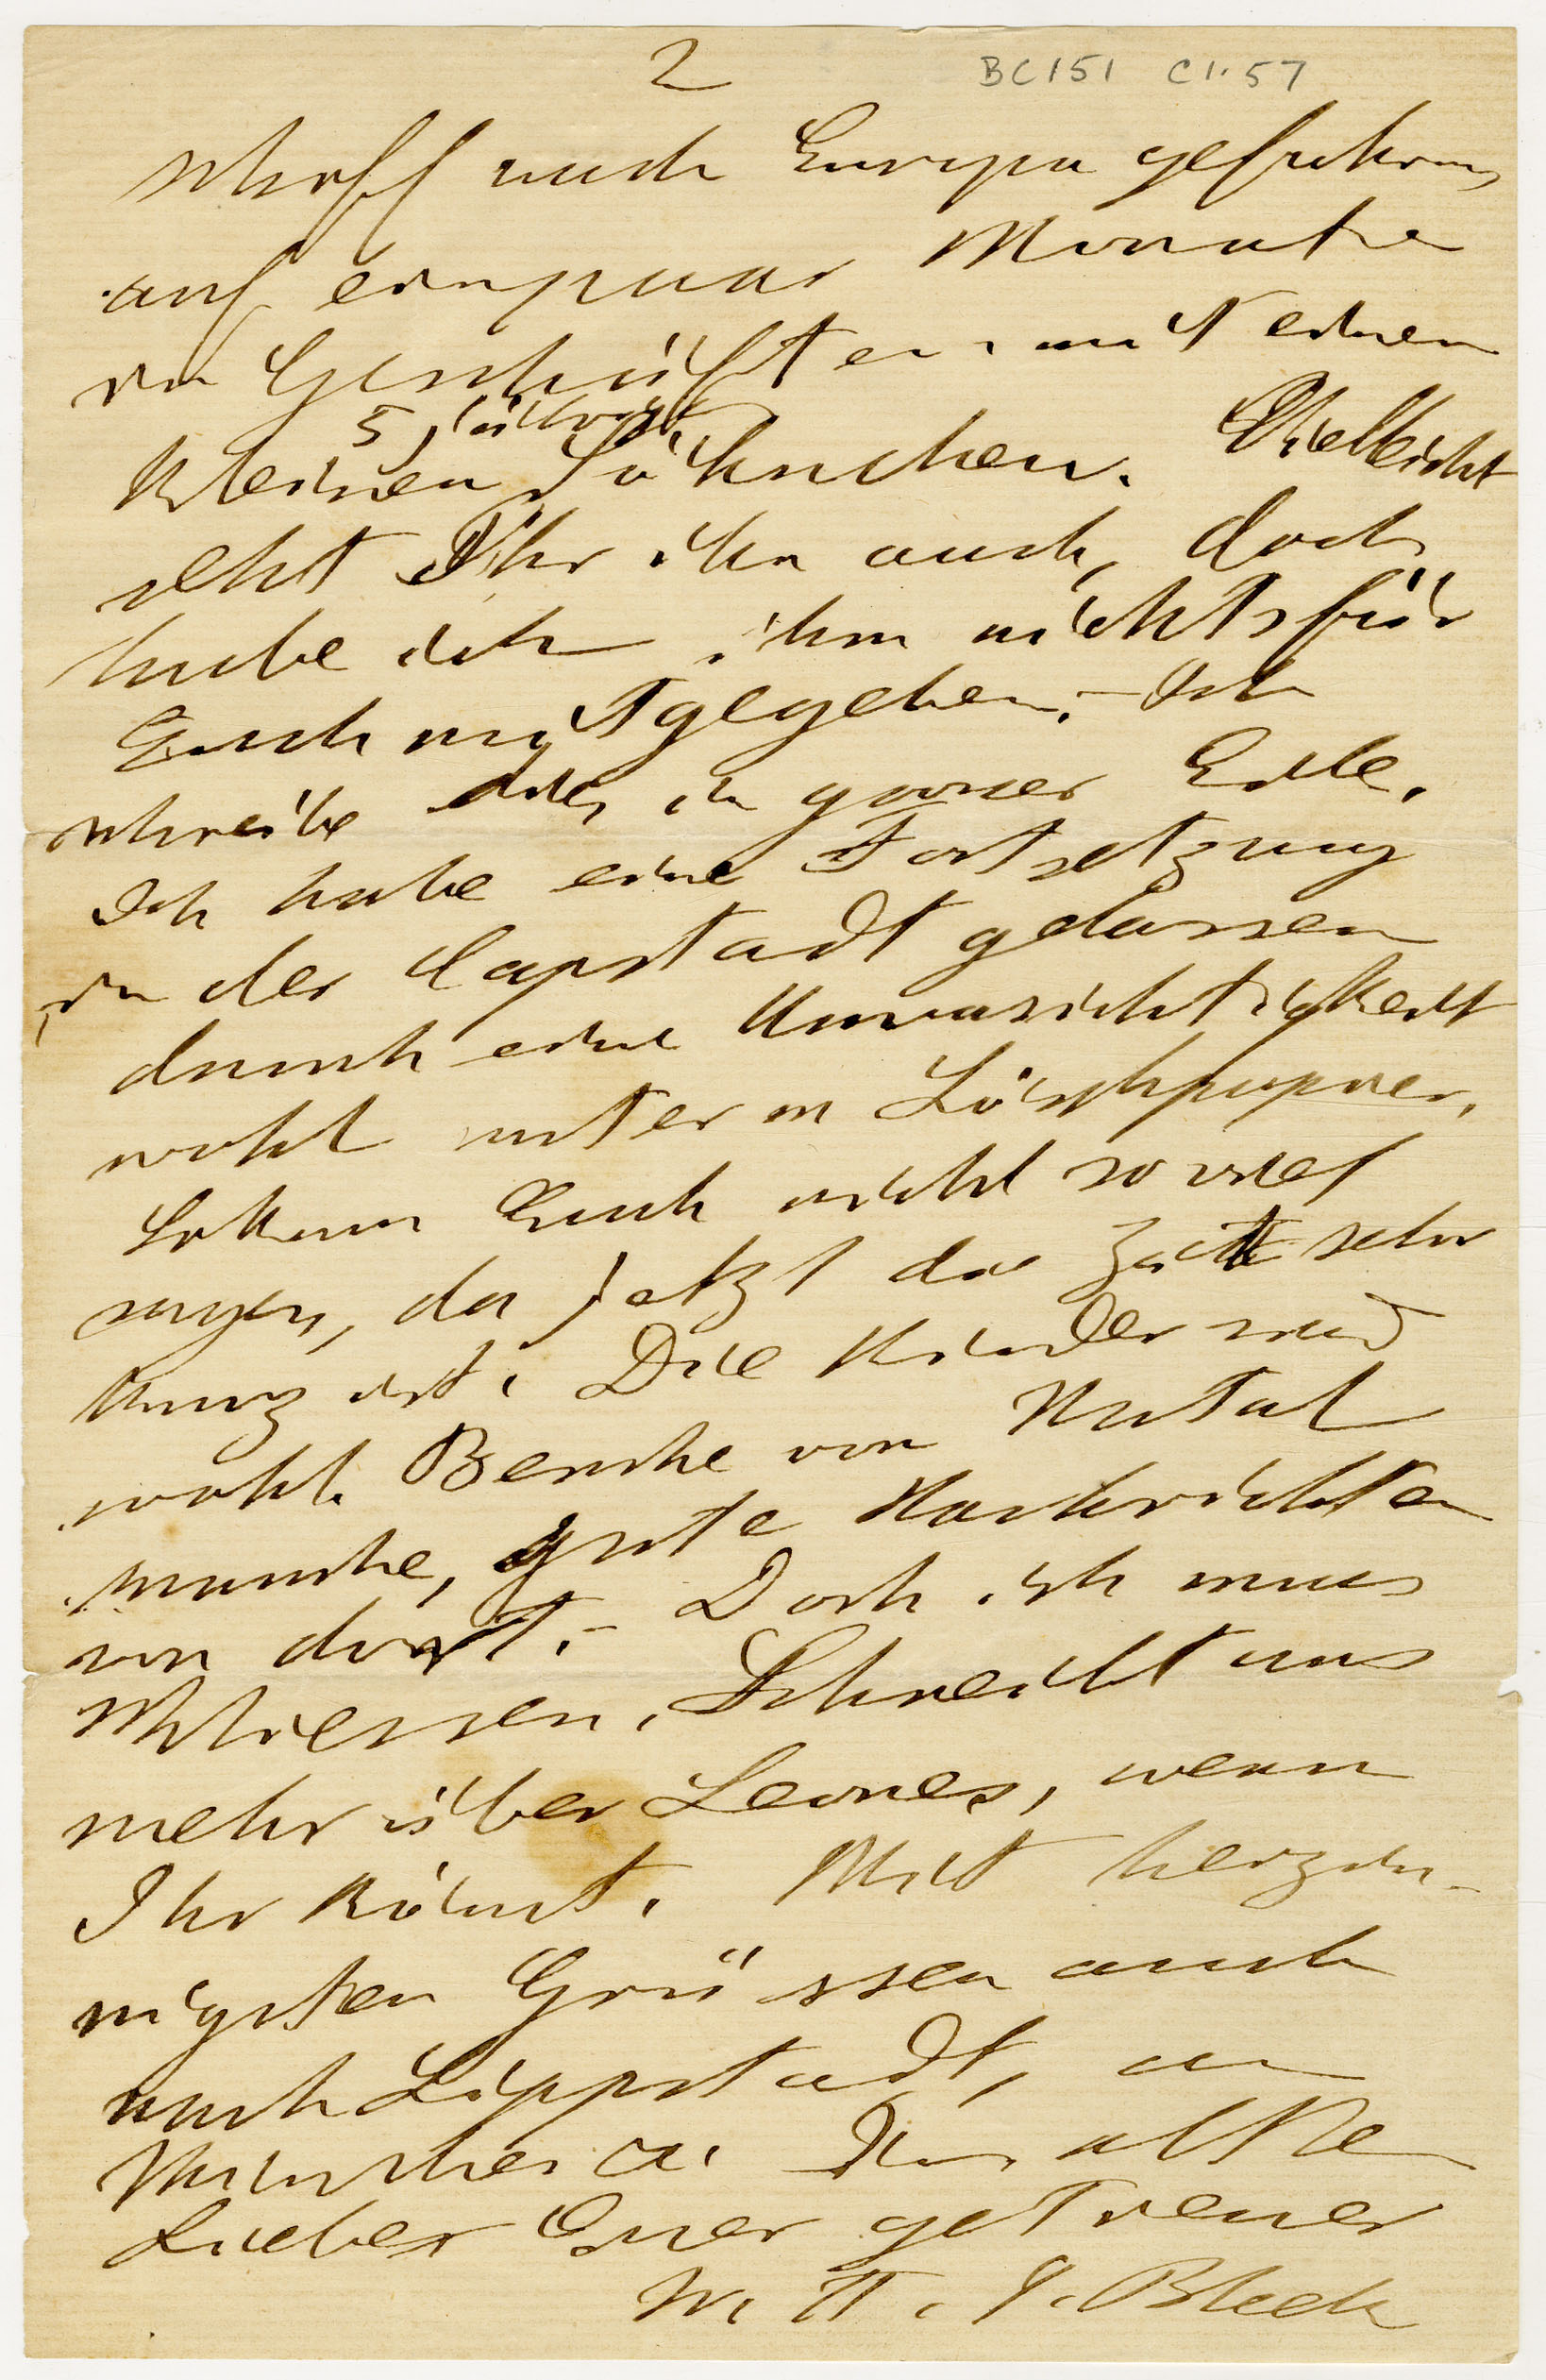 2
BC151 C1.57
schoff nach Europa gefahren,
auf einpaar Monate
in Geschäften, mit einem
5 jährigen
kleinen Söhnchen. Vielleicht
seht Ihr ihn auch, doch
habe ich ihm nichts für
Euch mitgegeben. – Ich
schreibe dies in grosser Eile.
Ich habe eine Fortsetzung
in der Capstadt gelassen
durch eine Unvorsichtigkeit
wohl unterm Löschpapier.
So kann Euch nicht so viel
sagen, da jetzt die Zeit sehr
kurz ist. Die Kinder sind
wohl. Besuche von Natal
manche, gute Nachrichten
von dort. – Doch ich muss
schliessen. Schreibt uns
mehr über Leones, wenn
Ihr könnt. Mit herzin-
nigsten Grüssen auch
nach Lippstadt, an
alle
Lieber Euer getreuer
W. H. I. Bleek